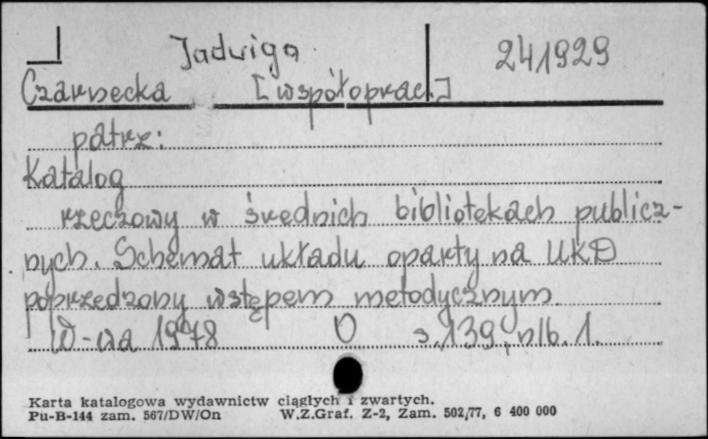 Jadwiga 241929
Czarnecka [współoprac.]
patrz:
Katalog
rzeczowy w średnich bibliotekach publicz-
nych. Schemat układu oparty na UKD
poprzedzony wstępem metodycznym
W-wa 1978 O s. 139, nlb. 1.
Karta katalogowa wydawnictw ciągłych i zwartych.
Pu-B-144 zam. 567/DW/On W.Z.Graf. Z-2, Zam. 502/77, 6 400 000